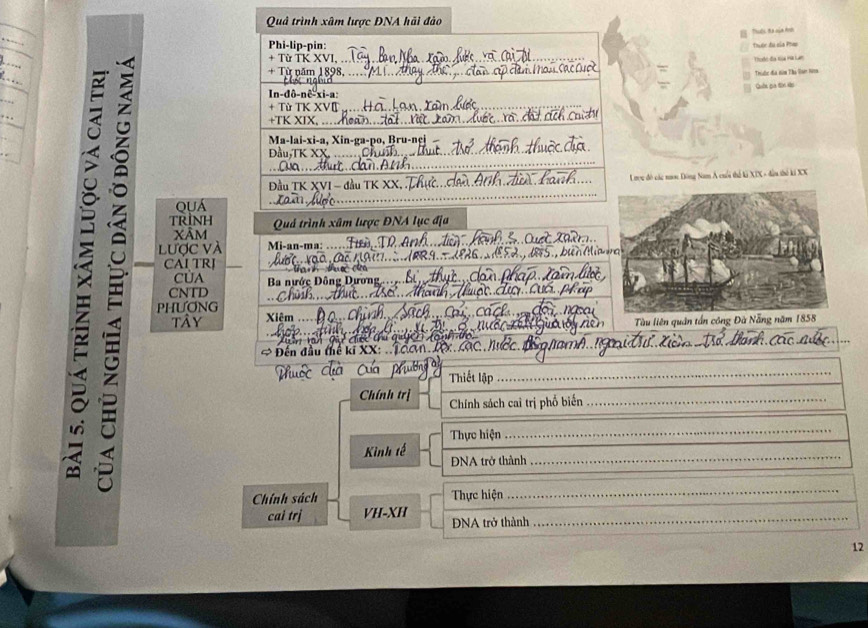 BÀI 5. QUÁ TRÌNH XÂM LƯỢC VÀ CAI TRỊ
CỦA CHỦ NGHĨA THỰC DÂN Ở ĐÔNG NAM Á
QUÁ
TRÌNH
XÂM
LƯỢC VÀ
CAI TRỊ
CỦA
CNTD
PHƯƠNG
TÂY
Quá trình xâm lược ĐNA hải đảo
Phi-lip-pin:
+ Từ TK XVI, Tây Ban Nha xâm lược và cai trị
+ Từ năm 1898, Mĩ thay thế
In-đô-nê-xi-a:
+ Từ TK XVII Hà Lan xâm lược
+TK XIX, Hoàn tất việc xâm lược và đặt ách cai trị
Ma-lai-xi-a, Xin-ga-po, Bru-nei
Đầu TK XX, chính thức trở thành thuộc địa
của thực dân Anh
Đầu TK XVI – đầu TK XX, Thực dân Anh tiến hành
xâm lược
Lược đồ các nước Đông Nam Á cuối thế kỉ XIX - đầu thế kỉ XX
Quá trình xâm lược ĐNA lục địa
Mi-an-ma: TD Anh tiến hành 3 cuộc xâm
lược vào các năm 1885, biến Mianma
thành thuộc địa
Ba nước Đông Dương Bị thực dân pháp xâm lược,
chính thức trở thành thuộc địa của pháp
Xiêm chính sách cải cách
Tàu liên quân tấn công Đà Nẵng năm 1858
⇨ Đến đầu thế kỉ XX: các nước Đông Nam Á ngoại trừ Xiêm trở thành các nước
thuộc địa của phương tây
Chính sách
cai trị
Chính trị
Thiết lập
Chính sách cai trị phổ biến
Kinh tế
Thực hiện
ĐNA trở thành
VH-XH
Thực hiện
ĐNA trở thành
12